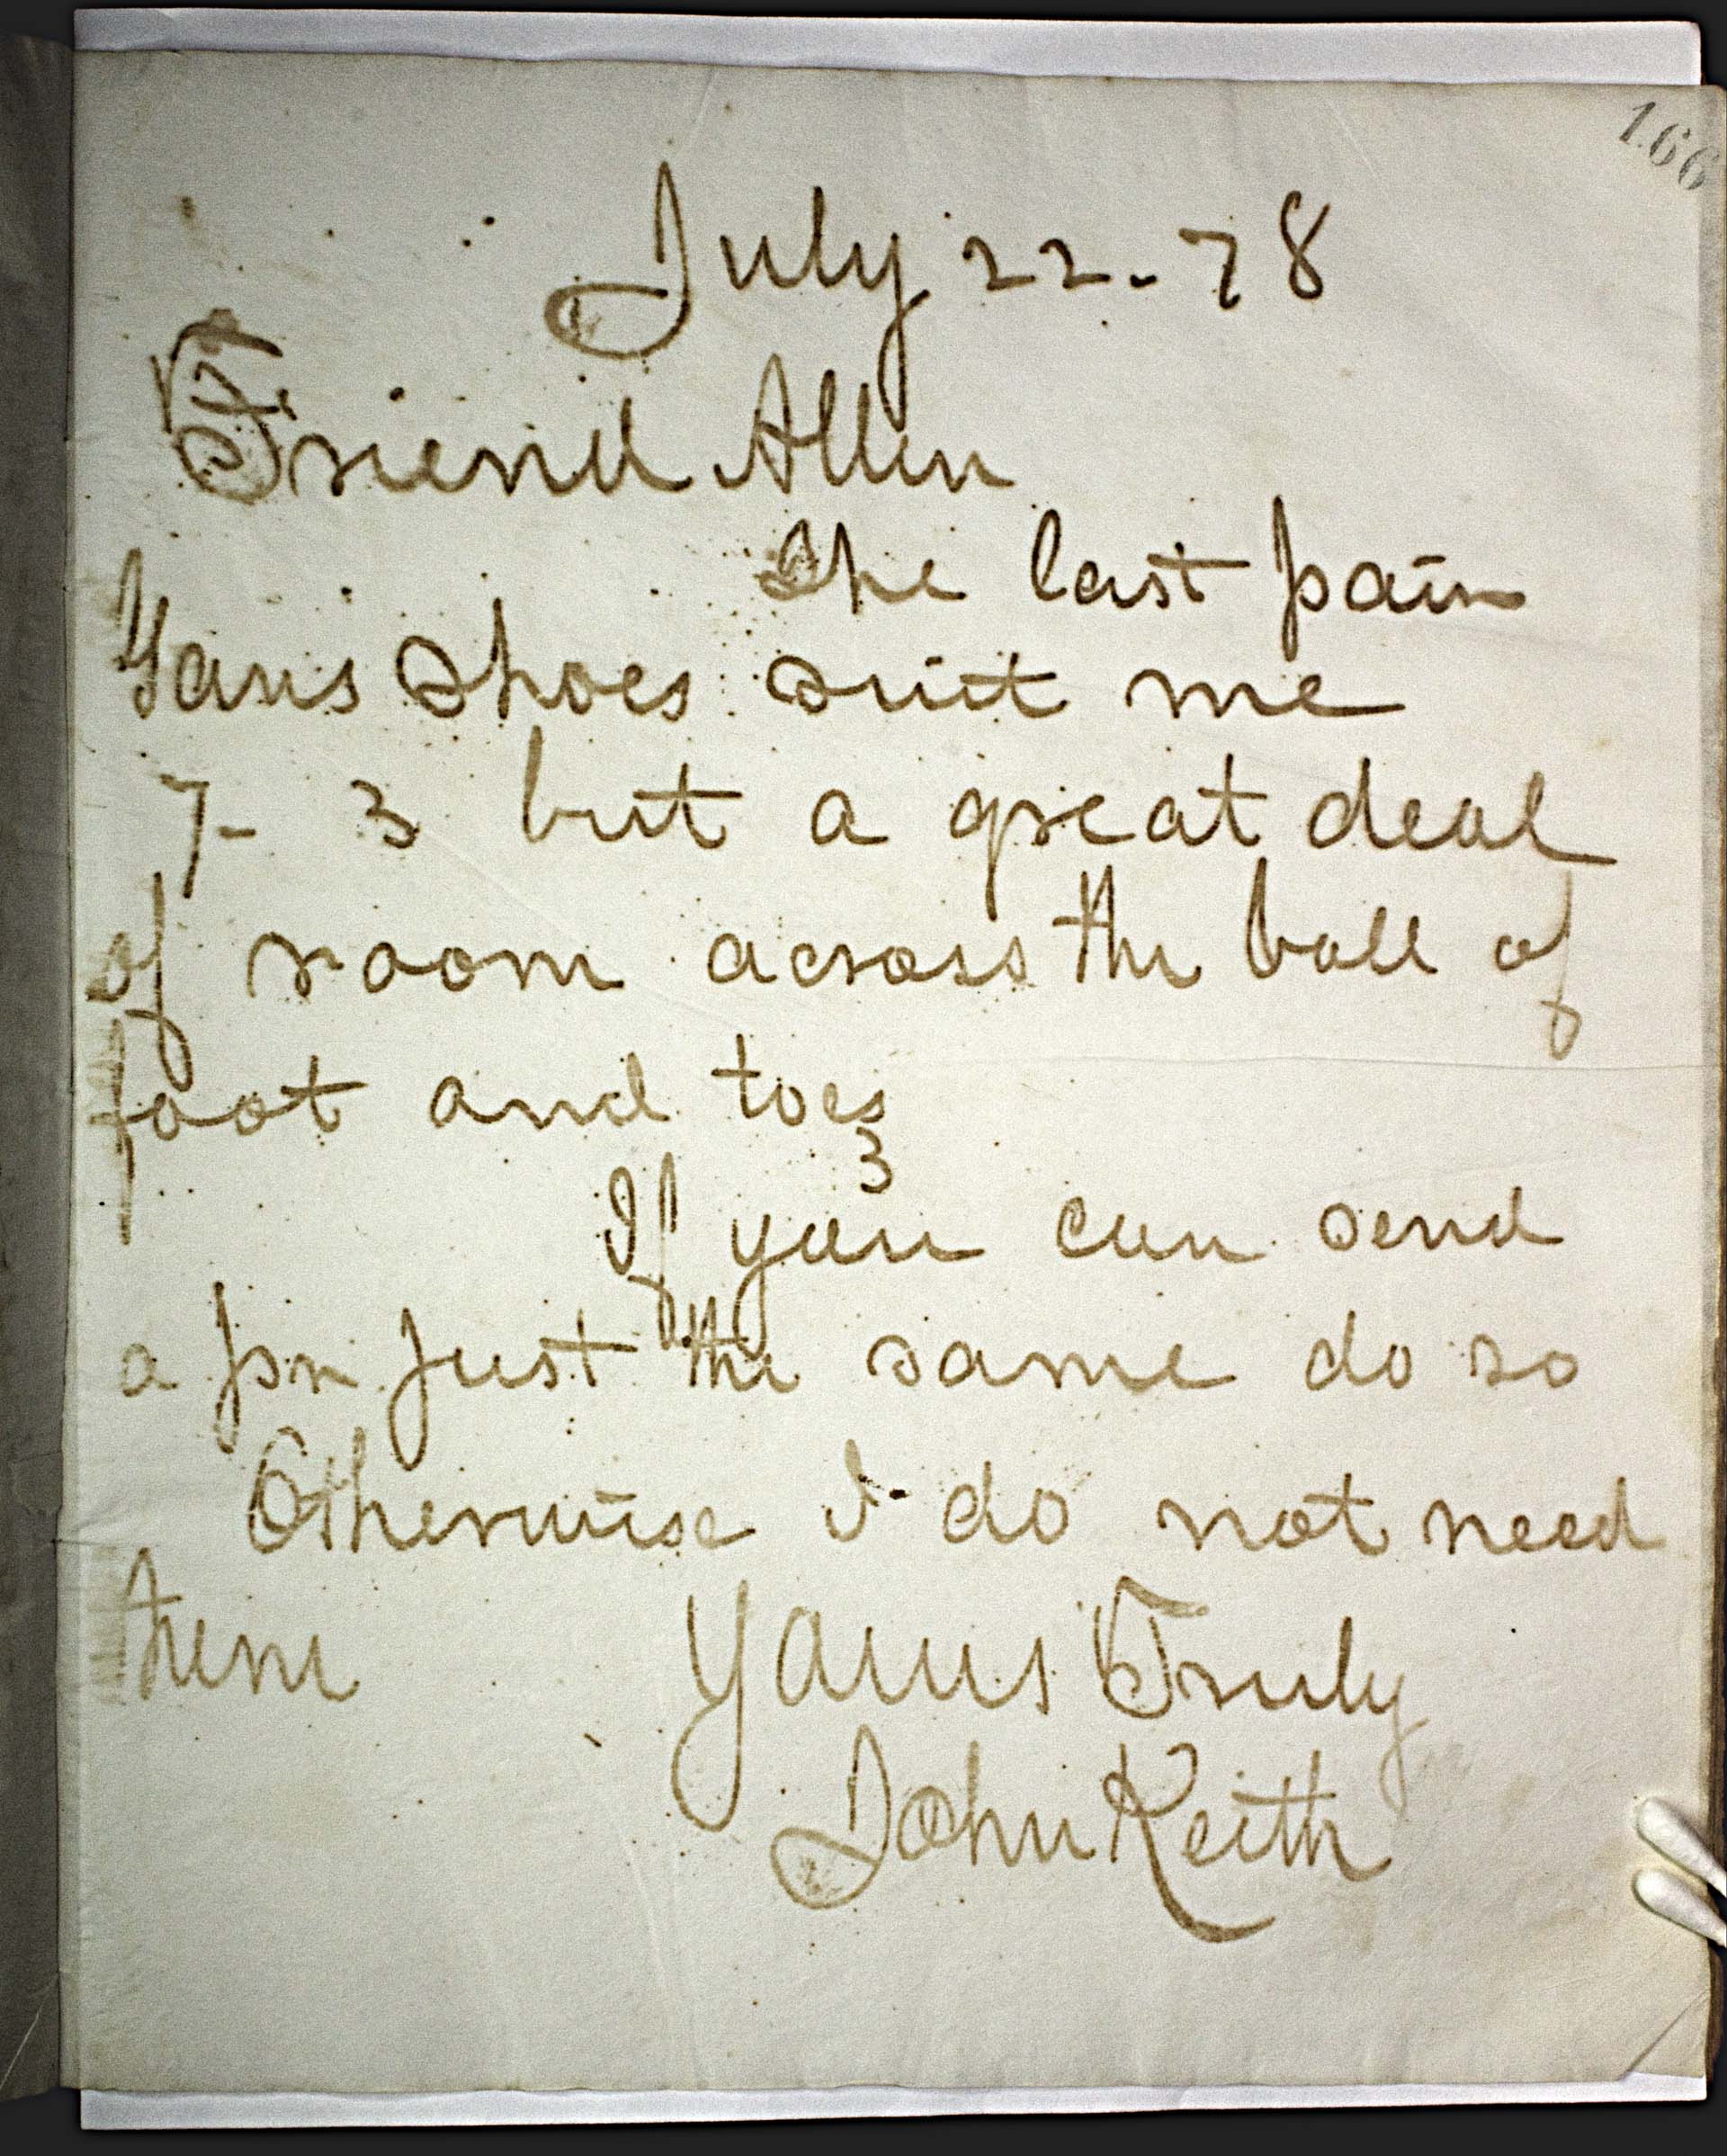 166
July 22-78
Friend Allen
The last pair
Yours Shoes suit me
7- 3 but a great deal
of room across the ball of
foot and toes
3
If you can send
a pr just the same do so
Otherwise I do not need
them Yours Truly
John Keith